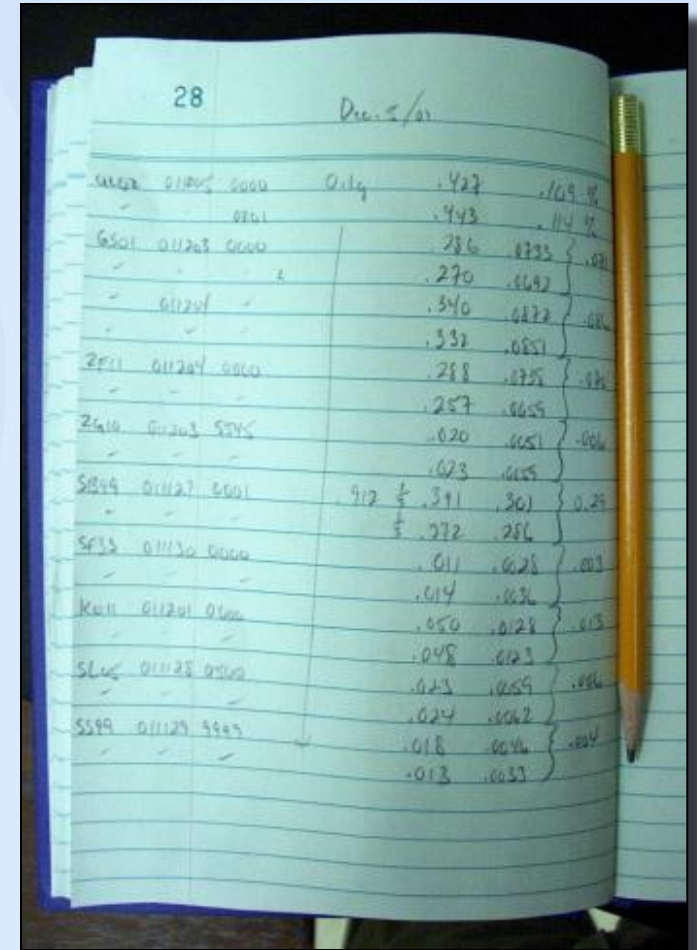 28 Dec. 5/01
0000 0.1g .427 .109 %
" 0701 .443 .114 %
GS01 011203 0000 .286 .0733 }
" " " .270 .0692
" 011204 " .340 .0872 }
" " .332 .0851
ZF11 011204 0000 .288 .0738 }
" " " .257 .0659
ZG10 011203 5545 .020 .0051 } .006
" " " .023 .0059
SB99 011127 0001 .912 1/5 .391 .301 } 0.29
" " " 1/5 .372 .286
SF33 011130 0000 .011 .0028 } .003
" " " .014 .0036
K011 011201 0000 .050 .0128 } .013
" " " .048 .0123
SL05 011128 0500 .023 .0059 } .006
" " " .024 .0062
SS99 011129 9999 .018 .0046 } .004
" " " .013 .0033